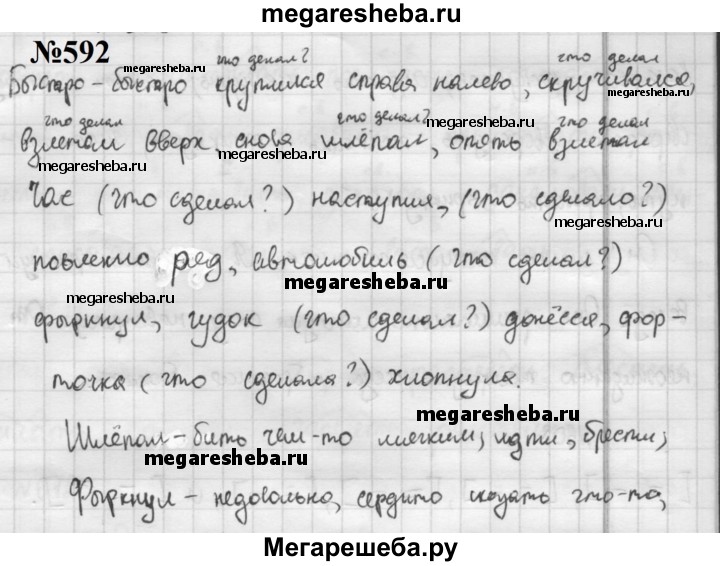 megaresheba.ru
№592
что делал? что делал
megaresheba.ru
Быстро-быстро крутился справа налево, скручивался,
megaresheba.ru
что делал что делал? что делал
взлетал вверх, снова шлёпал, опять взлетал
megaresheba.ru
megaresheba.ru
megaresheba.ru
час (что сделал?) наступил, (что сделало?)
megaresheba.ru
повлекло ряд, автомобиль (что сделал?)
megaresheba.ru
megaresheba.ru
фыркнул, гудок (что сделал?) донёсся, фор-
точка (что сделала?) хлопнула.
megaresheba.ru
Шлёпал - бить чем-то мягким; идти, брести;
megaresheba.ru
Фыркнул - недовольно, сердито сказать что-то,
Мегарешеба.ру